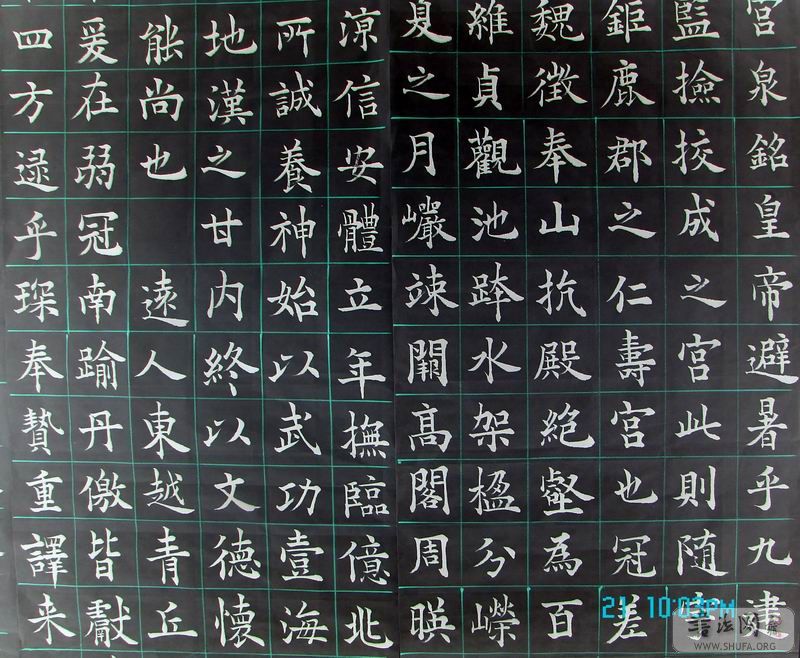 宫泉銘皇帝避暑乎九建
監撿挍成之宫此則随
鉅鹿郡之仁壽宫也冠差
魏徵奉山抗殿絶壑為百
維貞觀池跨水架楹分嶸
夏之月巖竦闕高閣周暎
涼信安體立年撫臨億北
所誠養神始以武功壹海
地漢之甘内終以文德懷
能尚也 遠人東越青丘
爰在弱冠南踰丹儌皆獻
四方逯乎琛奉贄重譯来
21 10:03PM
書法网
WWW.SHUFA.ORG